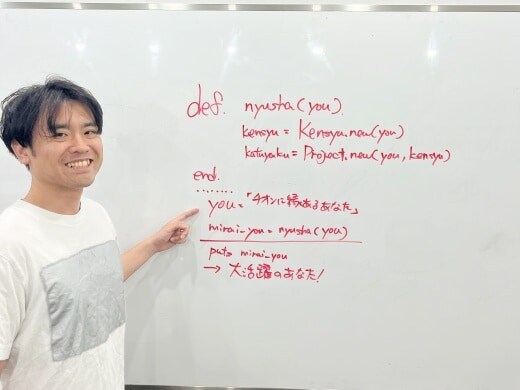 def. nyusha(you).
kensyu = Kensyu.new(you)
katuyaku = Project.new(you, kensyu)
end.
........
you = 「4オンに縁あるあなた」
mirai_you = nyusha(you)
puts mirai_you
→ 大活躍のあなた!